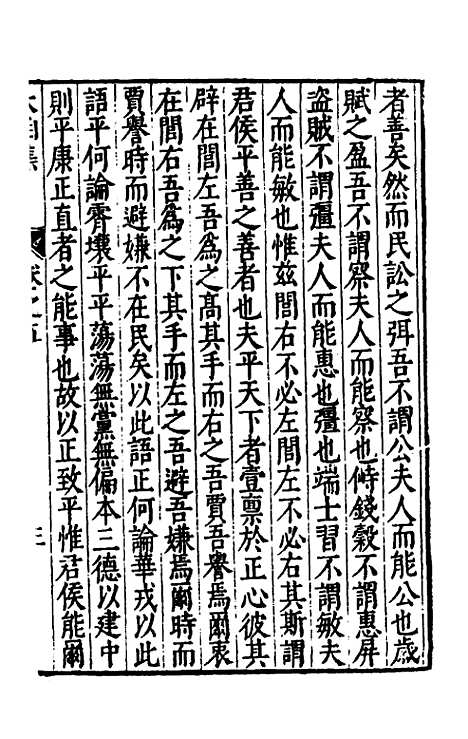 者善矣然而民訟之弭吾不謂公夫人而能公也歲
賦之盈吾不謂察夫人而能察也偫錢穀不謂惠屏
盜賊不謂彊夫人而能惠也彊也端士習不謂敏夫
人而能敏也惟玆閭右不必左閭左不必右其斯謂
君侯平善之善者也夫平天下者壹禀於正心彼其
辟在閭左吾爲之高其手而右之吾賈吾譽焉爾衷
在閭右吾爲之下其手而左之吾避吾嫌焉爾時而
賈譽時而避嫌不在民矣以此語正何論華戎以此
語平何論霄壤平平蕩蕩無黨無偏本三德以建中
則平康正直者之能事也故以正致平惟君侯能爾
卷之五
三